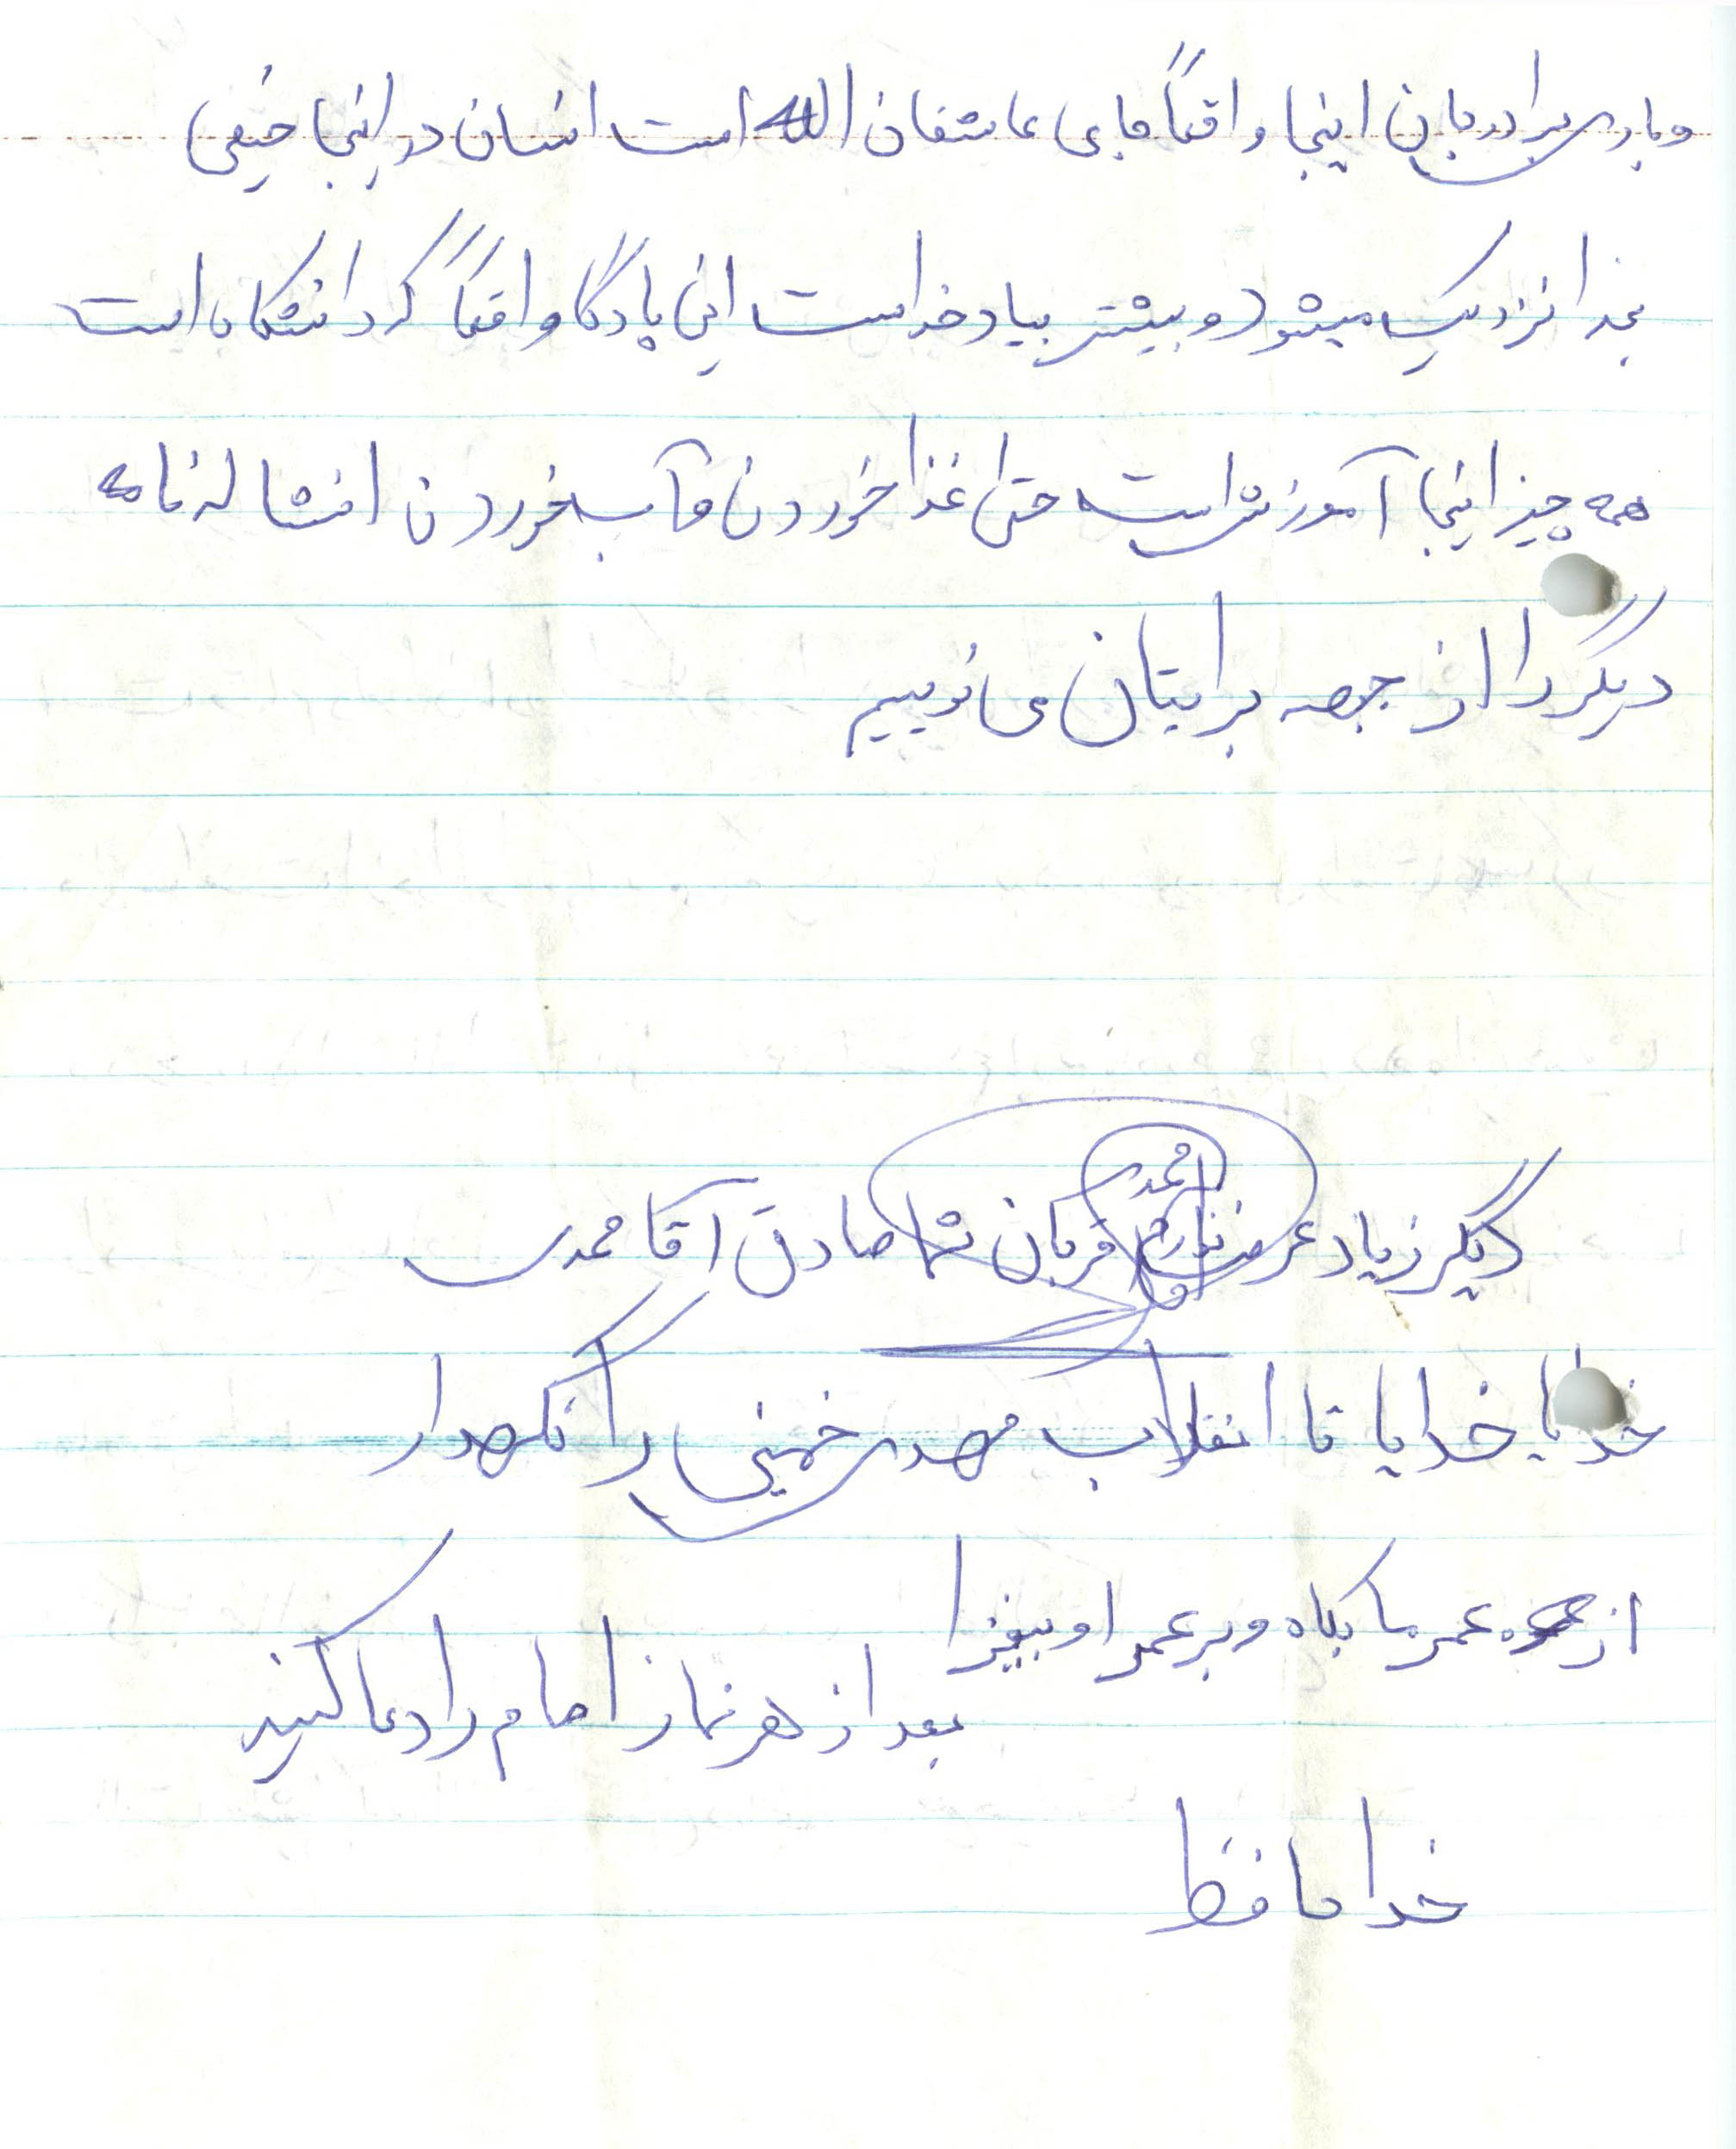 وباری برادرجان اینجا واقعاً جای عاشقان الله است انسان در اینجا خیلی
بخدا نزدیک میشود و بیشتر بیاد خداست این پادگا واقعاً کردانشگاه است
همه چیز اینجا آموزش است حتی غذا خوردن و آب خوردن انشاله نامه
دیگر را از جبهه برایتان می نویسم
دیگر زیاد عرض قربان شما صادق آقا محمدی
خدایا خدایا تا انقلاب مهدی خمینی را نگهدار
از عمر ما بکاه و بر عمر او بیفزا
بعد از هر نماز امام را دعا کنید
خدا حافظ